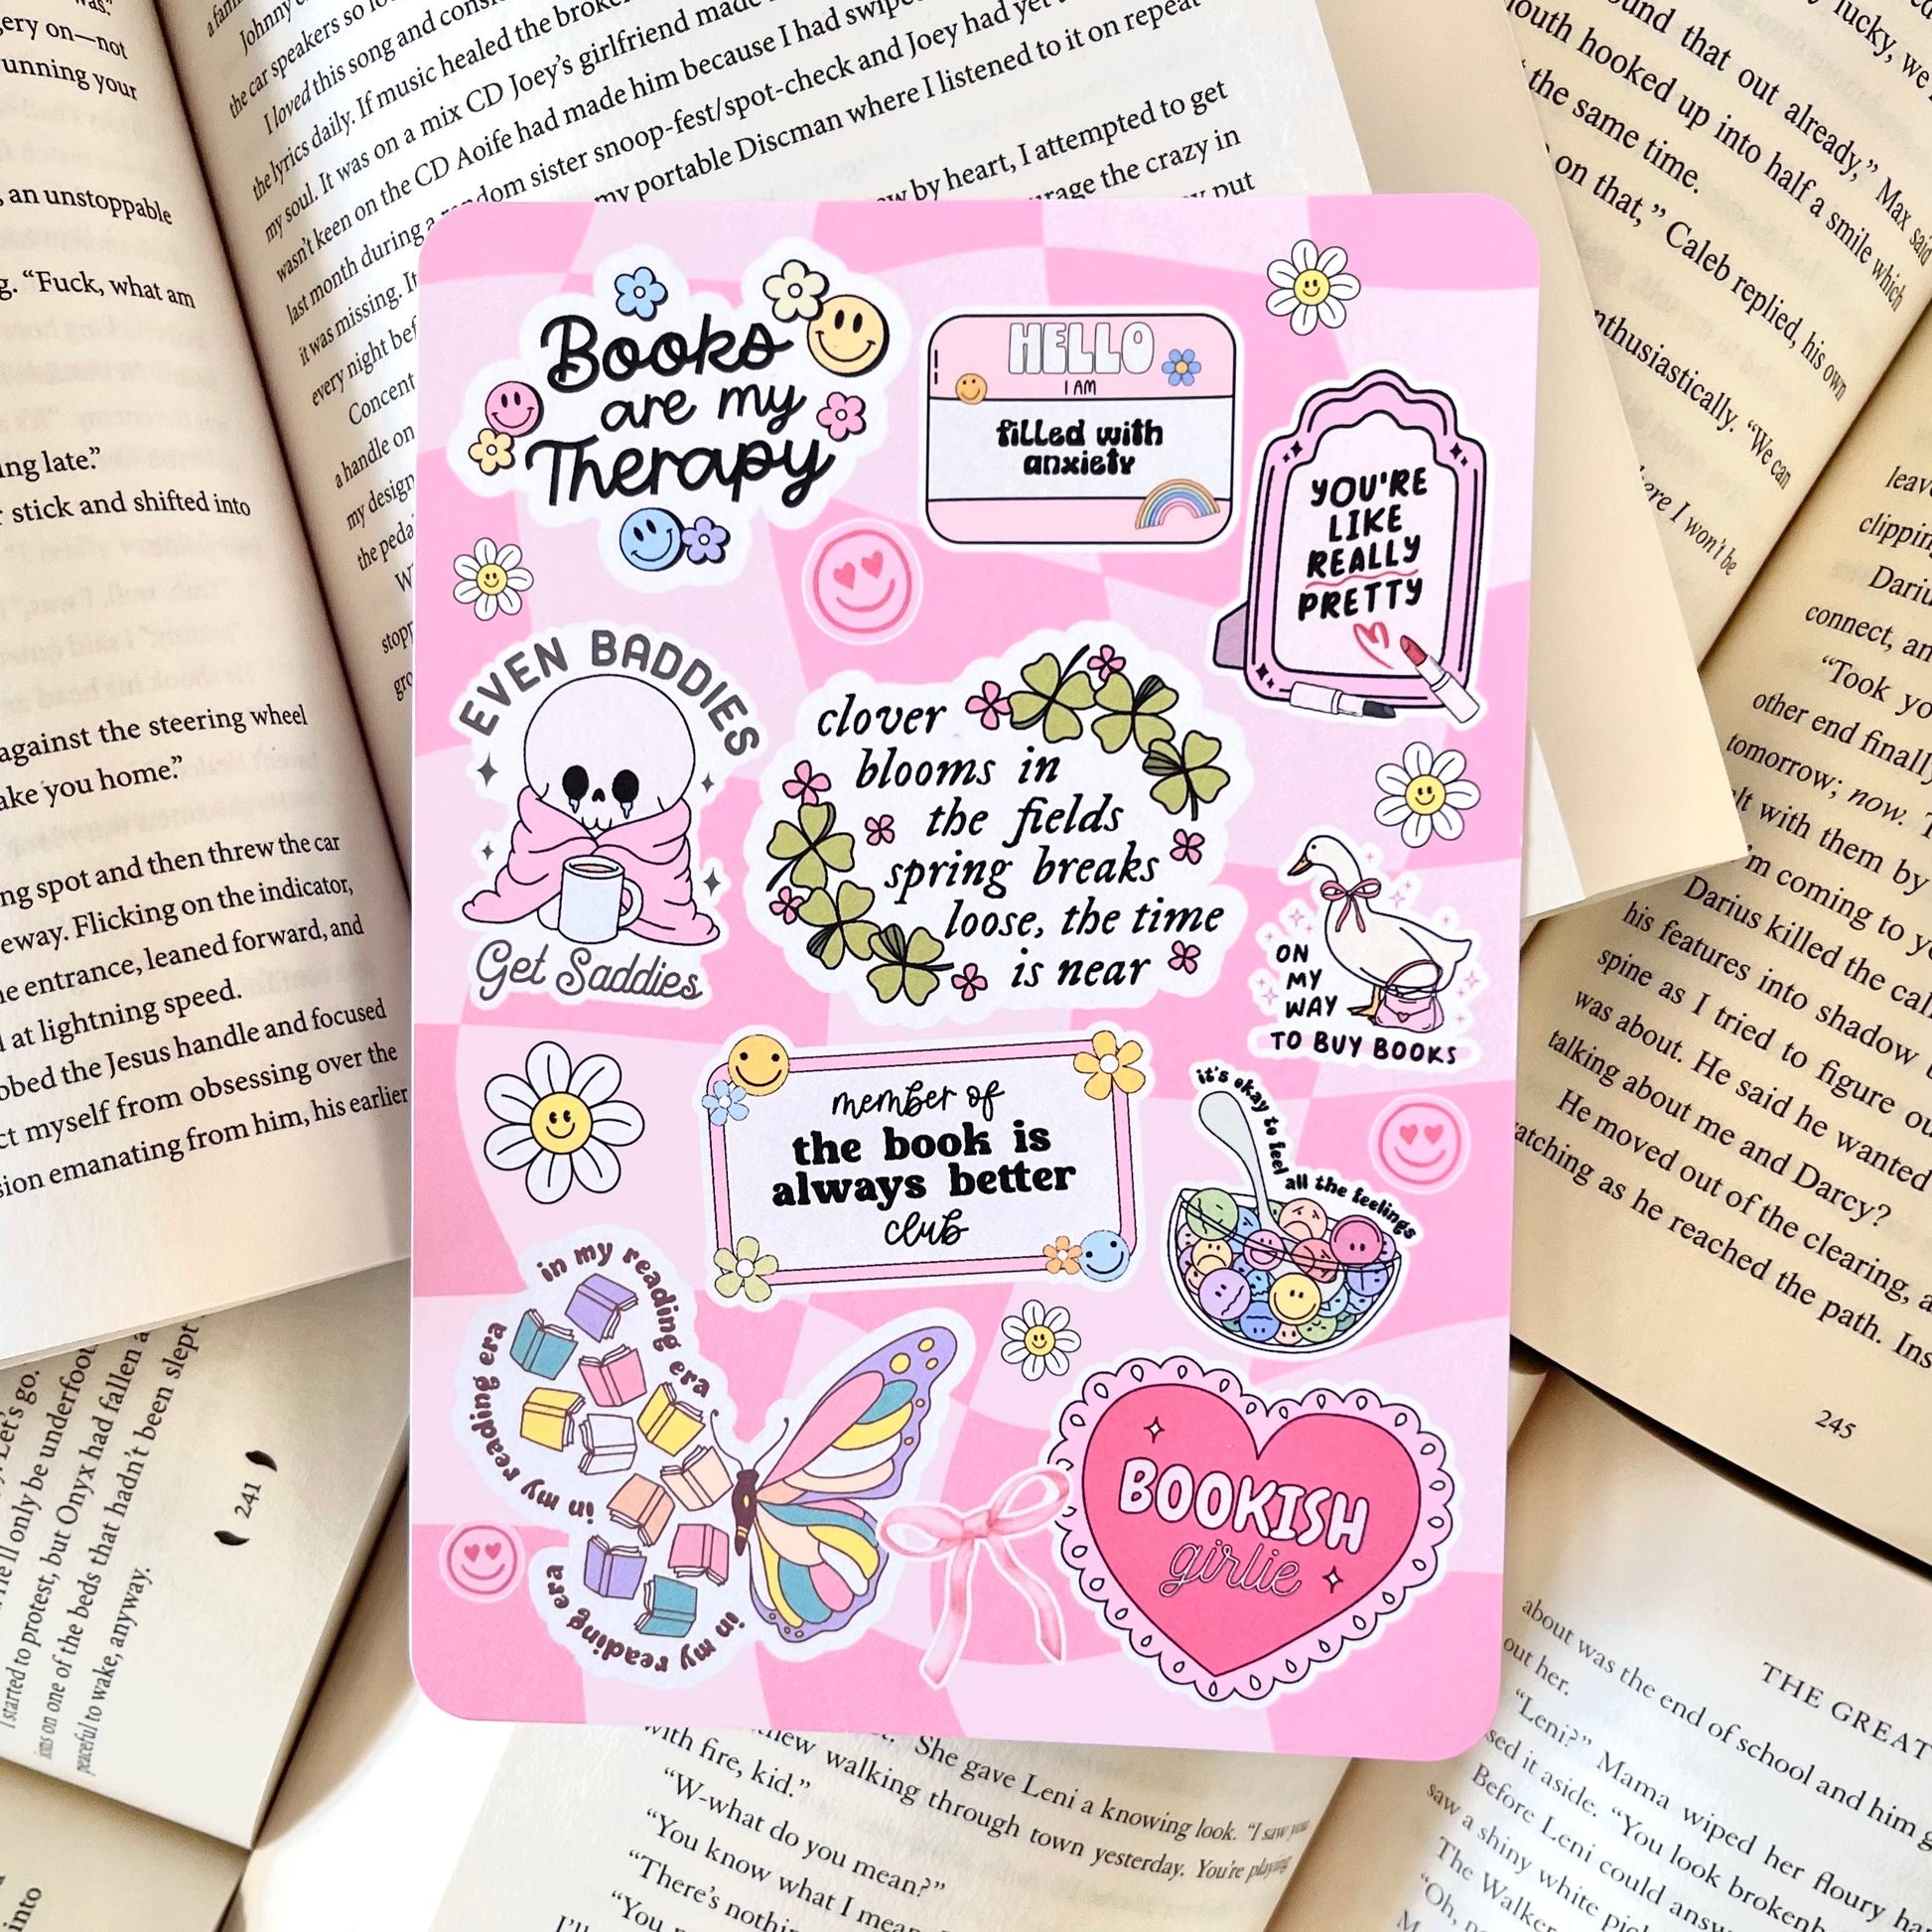 was."
ery on—not
unning your
, an unstoppable
g. "Fuck, what am
ing late."
stick and shifted into
against the steering wheel
ake you home."
ng spot and then threw the car
eway. Flicking on the indicator,
e entrance, leaned forward, and
at lightning speed.
bbed the Jesus handle and focused
ct myself from obsessing over the
sion emanating from him, his earlier
Johnny
the car speakers so
I loved this song and
the lyrics daily. If music healed the
my soul. It was on a mix CD Joey's girlfriend made
wasn't keen on the CD Aoife had made him because I had
last month during a random sister snoop-fest/spot-check and Joey had yet
it was missing. my portable Discman where I listened to it on repeat
every night by heart, I attempted to get
Concent the crazy in
a handle on put
my design
the peda
Books
are my
Therapy
HELLO
I AM
filled with
anxiety
YOU'RE
LIKE
REALLY
PRETTY
EVEN BADDIES
Get Saddies
clover
blooms in
the fields
spring breaks
loose, the time
is near
ON
MY
WAY
TO BUY BOOKS
member of
the book is
always better
club
it's okay to feel
all the feelings
in my reading era
in my reading era
in my reading era
BOOKISH
girlie
lucky, we
ound that out already," Max said
outh hooked up into half a smile which
the same time.
on that," Caleb replied, his own
nthusiastically. "We can
here I won't be
leav
clipping
Dariu
connect, an
"Took yo
other end finally
tomorrow; now.
lt with them by
'm coming to yo
Darius killed the cal
his features into shadow
spine as I tried to figure ou
was about. He said he wanted
talking about me and Darcy?
He moved out of the clearing, a
atching as he reached the path. Ins
245
Let's go.
He'll only be underfoot
I started to protest, but Onyx had fallen a
ims on one of the beds that hadn't been slept
peaceful to wake, anyway.
241
into
She gave Leni a knowing look. "I saw you
hew walking through town yesterday. You're playing
with fire, kid."
"W-what do you mean?"
"You know what I mean
"There's nothi
"You
I'll
THE GREAT
about was the end of school and him g
out her.
"Leni?" Mama wiped her floury ha
sed it aside. "You look broken
Before Leni could answ
saw a shiny white pic
The Walker
"Oh, n